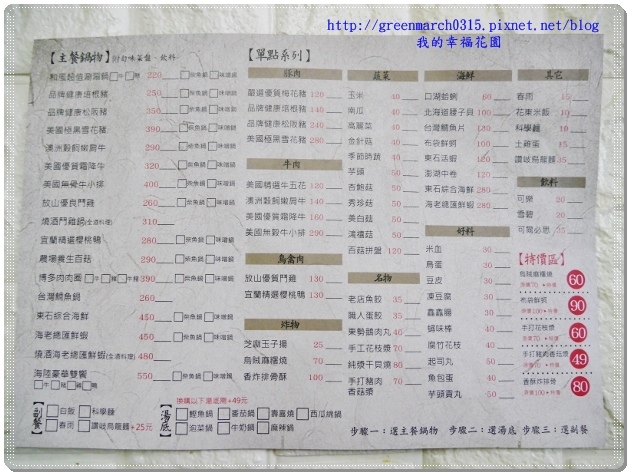 http://greenmarch0315.pixnet.net/blog
我的幸福花園
【主餐鍋物】附旬味菜盤、飲料
和風超值涮涮鍋 牛 豬 220 柴魚鍋 味噌鍋
品牌健康培根豬 250 柴魚鍋 味噌鍋
品牌健康松阪豬 350 柴魚鍋 味噌鍋
美國極黑雪花豬 390 柴魚鍋 味噌鍋
澳洲穀飼嫩肩牛 290 柴魚鍋 味噌鍋
美國優質霜降牛 320 柴魚鍋 味噌鍋
美國無骨牛小排 400 柴魚鍋 味噌鍋
放山優質鬥雞 260 柴魚鍋 味噌鍋
燒酒鬥雞鍋(全酒料理) 310
宜蘭精選櫻桃鴨 280 柴魚鍋 味噌鍋
農場養生百菇 290 柴魚鍋 味噌鍋
博多肉肉園 牛 豬 牛豬 390 柴魚鍋 味噌鍋
台灣鯛魚鍋 260
東石綜合海鮮 450 柴魚鍋 味噌鍋
海老總匯鮮蝦 450 柴魚鍋 味噌鍋
燒酒海老總匯鮮蝦(全酒料理) 480
海陸豪華雙饗 550 柴魚鍋 味噌鍋
牛 豬 雞 鴨
副餐
白飯 科學麵
春雨 讚岐烏龍麵+25元
湯底
換購以下湯底需+49元
鰹魚鍋 番茄鍋 壽喜鍋 西瓜燒鍋
泡菜鍋 牛奶鍋 麻辣鍋
【單點系列】
豚肉
嚴選優質梅花豬 120
品牌健康培根豬 140
品牌健康松阪豬 240
美國極黑雪花豬 280
牛肉
美國精選牛五花 120
澳洲穀飼嫩肩牛 140
美國優質霜降牛 160
美國無骨牛小排 290
鳥禽肉
放山優質鬥雞 130
宜蘭精選櫻桃鴨 130
炸物
芝麻玉子揚 25
烏賊麻糬燒 70
香炸排骨酥 100
蔬菜
玉米 40
南瓜 40
高麗菜 40
金針菇 40
季節時蔬 40
芋頭 50
杏鮑菇 50
秀珍菇 50
美白菇 50
鴻禧菇 50
百菇拼盤 120
名物
老店魚餃 35
職人蛋餃 35
東勢鵝肉丸 40
手工花枝漿 70
純漿干貝燒 80
手打豬肉 70
香菇漿
海鮮
口湖蛤蜊 60
北海道腰子貝 100
台灣鯛魚片 180
布袋鮮蚵 100
東石活蝦 120
澎湖中卷 120
東石綜合海鮮 280
海老總匯鮮蝦 280
好料
米血 30
鳥蛋 30
豆皮 30
凍豆腐 30
鑫鑫腸 30
蟳味棒 40
腐竹花枝 40
起司丸 50
魚包蛋 40
芋頭貢丸 50
其它
春雨 15
花東米飯 10
科學麵 10
土雞蛋 15
讚岐烏龍麵 35
飲料
可樂 20
雪碧 20
可爾必思 25
【特價區】
烏賊麻糬燒 60
布袋鮮蚵 90
手打花枝漿 60
手打豬肉香菇漿 49
香酥炸排骨 80
步驟一：選主餐鍋物 步驟二：選湯底 步驟三：選副餐